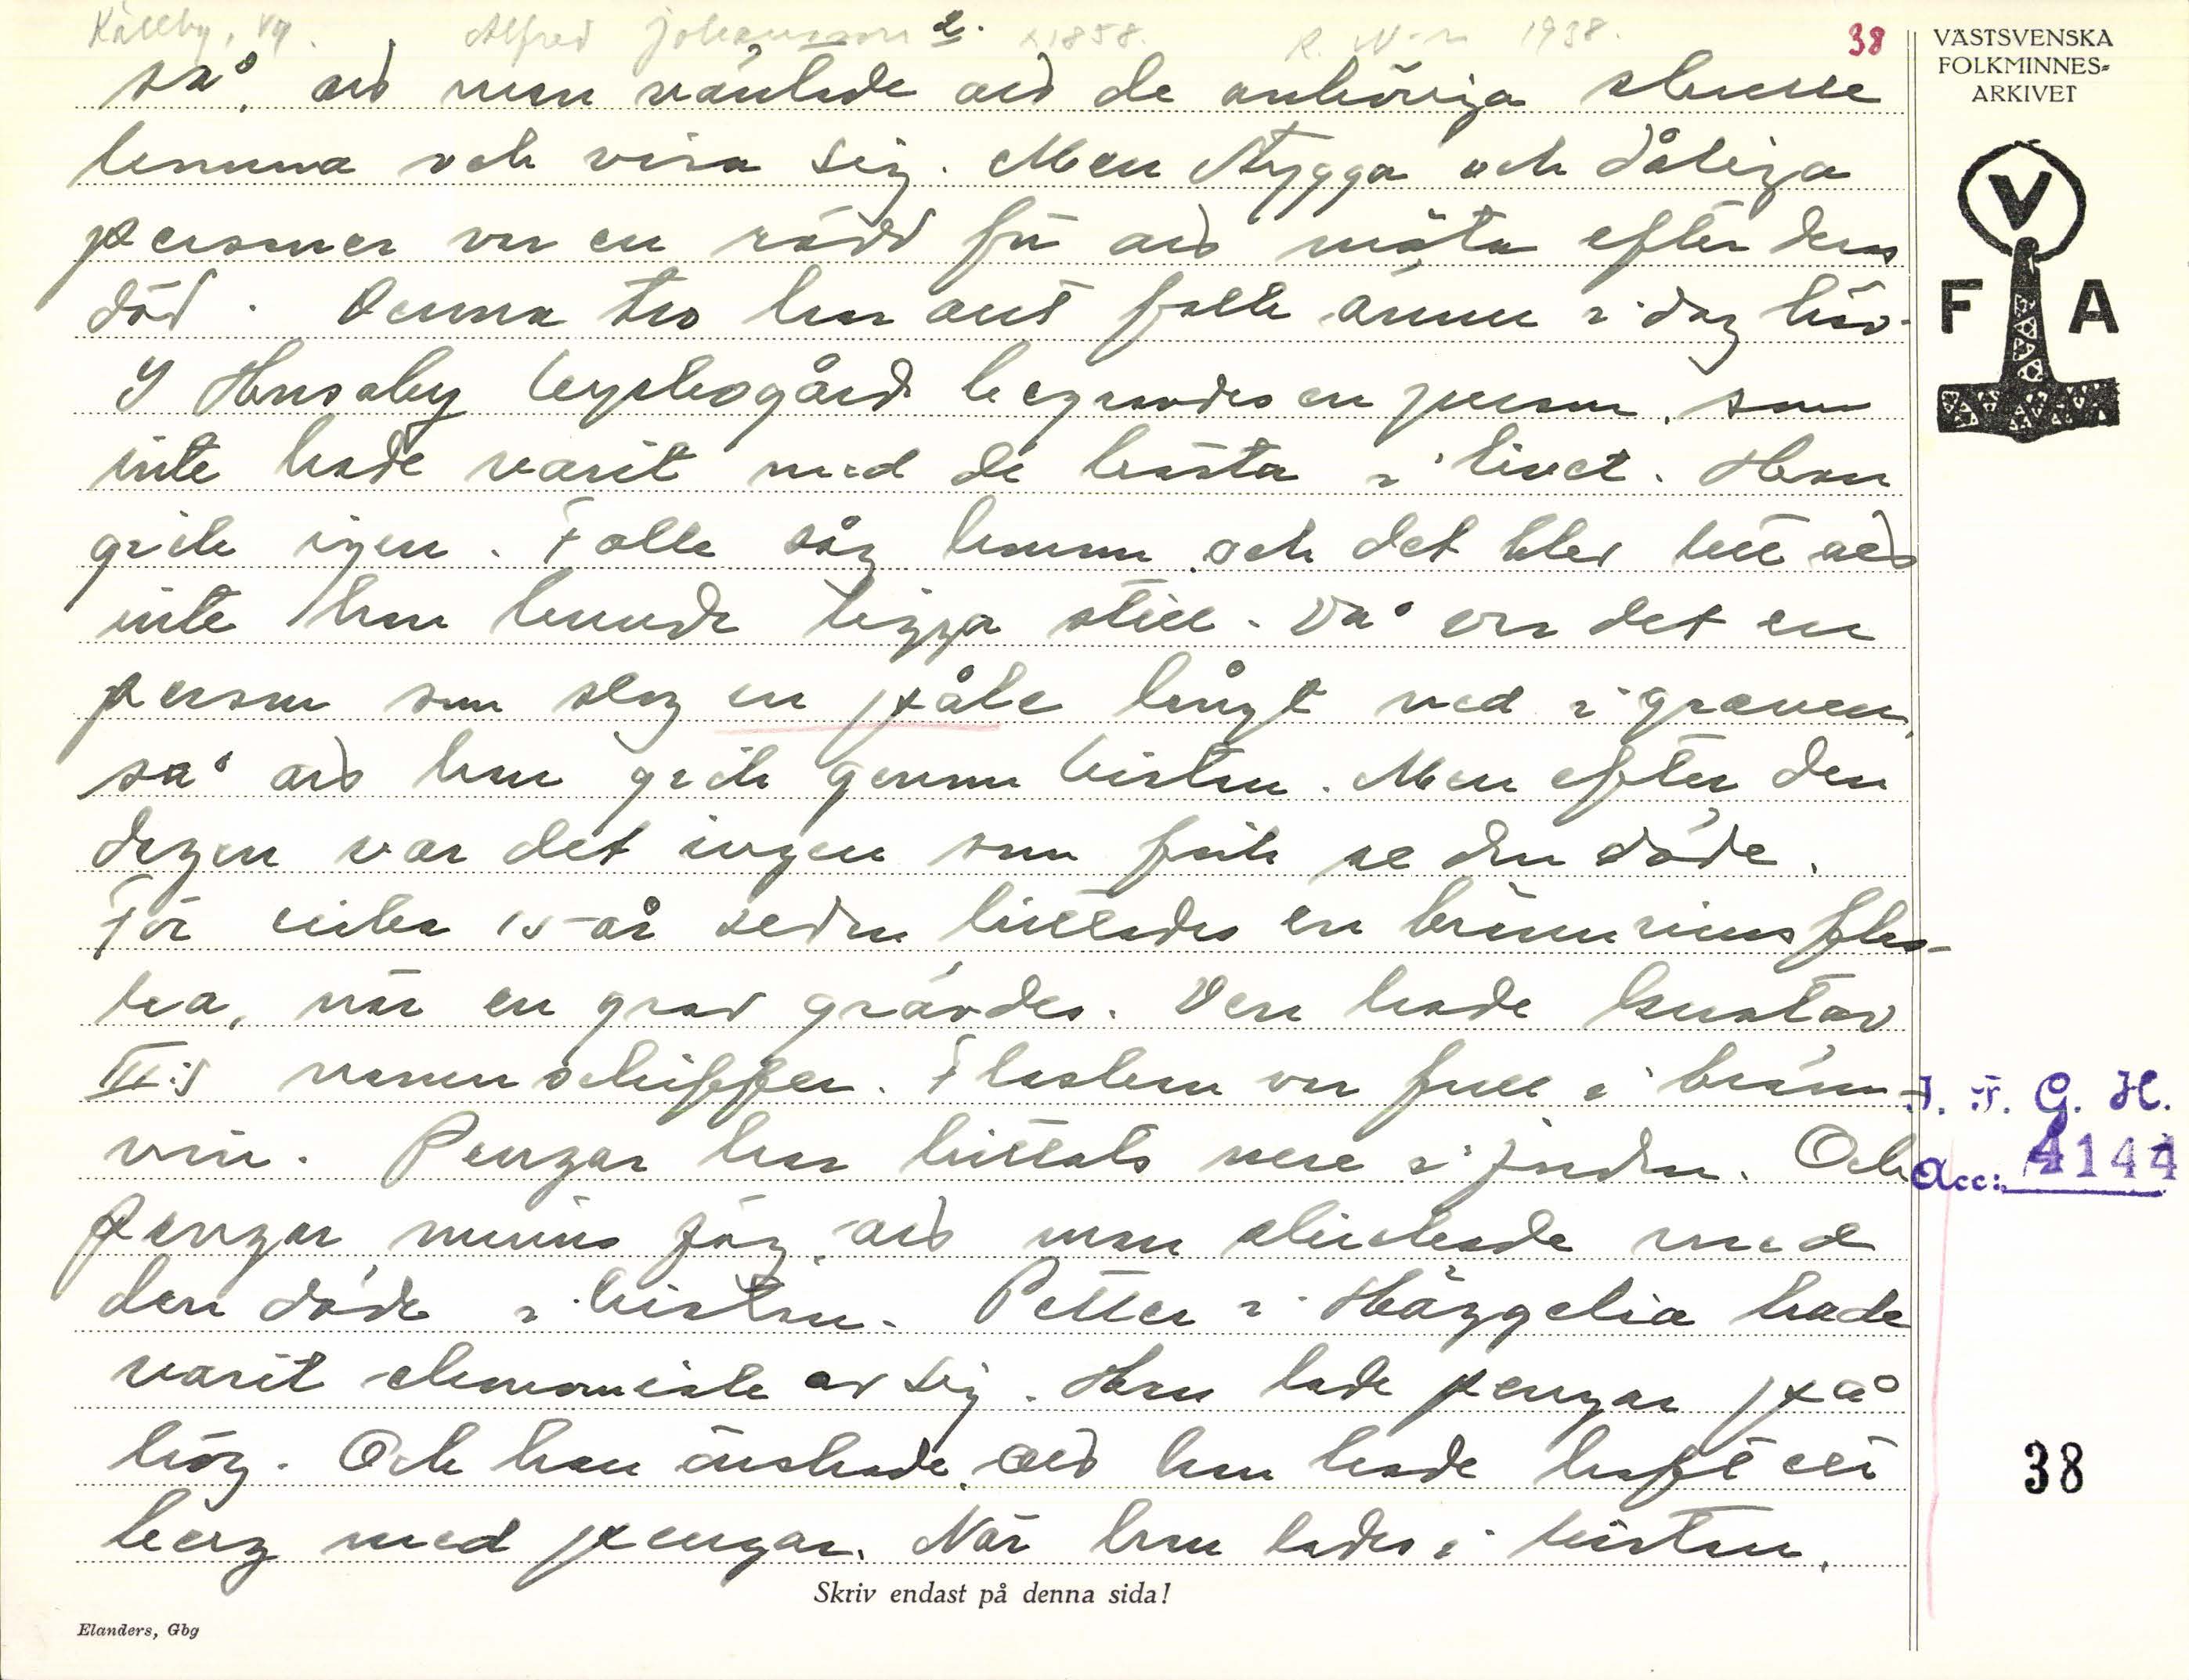 Källby, Vg. Alfred Johansson 2. f. 1858. R. N-n 1938. 38
så, att man väntade att de anhöriga skulle
komma och visa sig. Men stygga och dåliga
personer var en rädd för att möta efter deras
död. Denna tro har allt folk ännu i dag här.
I Husaby kyrkogård begravdes en person, som
inte hade varit med de bästa i livet. Han
gick igen. Folk såg honom, och det blev sett att
inte han kunde ligga still. Då var det en
person som slog en påle långt ned i graven,
så att han gick genom kistan. Men efter den
dagen var det ingen som fick se den döde.
För cirka 15 år sedan hittades en brännvinsflas-
ka, när en grav grävdes. Den hade Gustav
III:s namnschiffer. Flaskan var full i bränn-
vin. Pengar har hittats nere i jorden. Och
pengar, minns jag, att man skickade med
den döde i kistan. Petter i Häggelia hade
varit ekonomisk av sig. Han lade pengar på
hög. Och han önskade, att han hade haft ett
berg med pengar. När han lades i kistan,
Skriv endast på denna sida!
Elanders, Gbg
VÄSTSVENSKA
FOLKMINNES-
ARKIVET
V
F A
I. F. G. H.
Acc: 4144
38